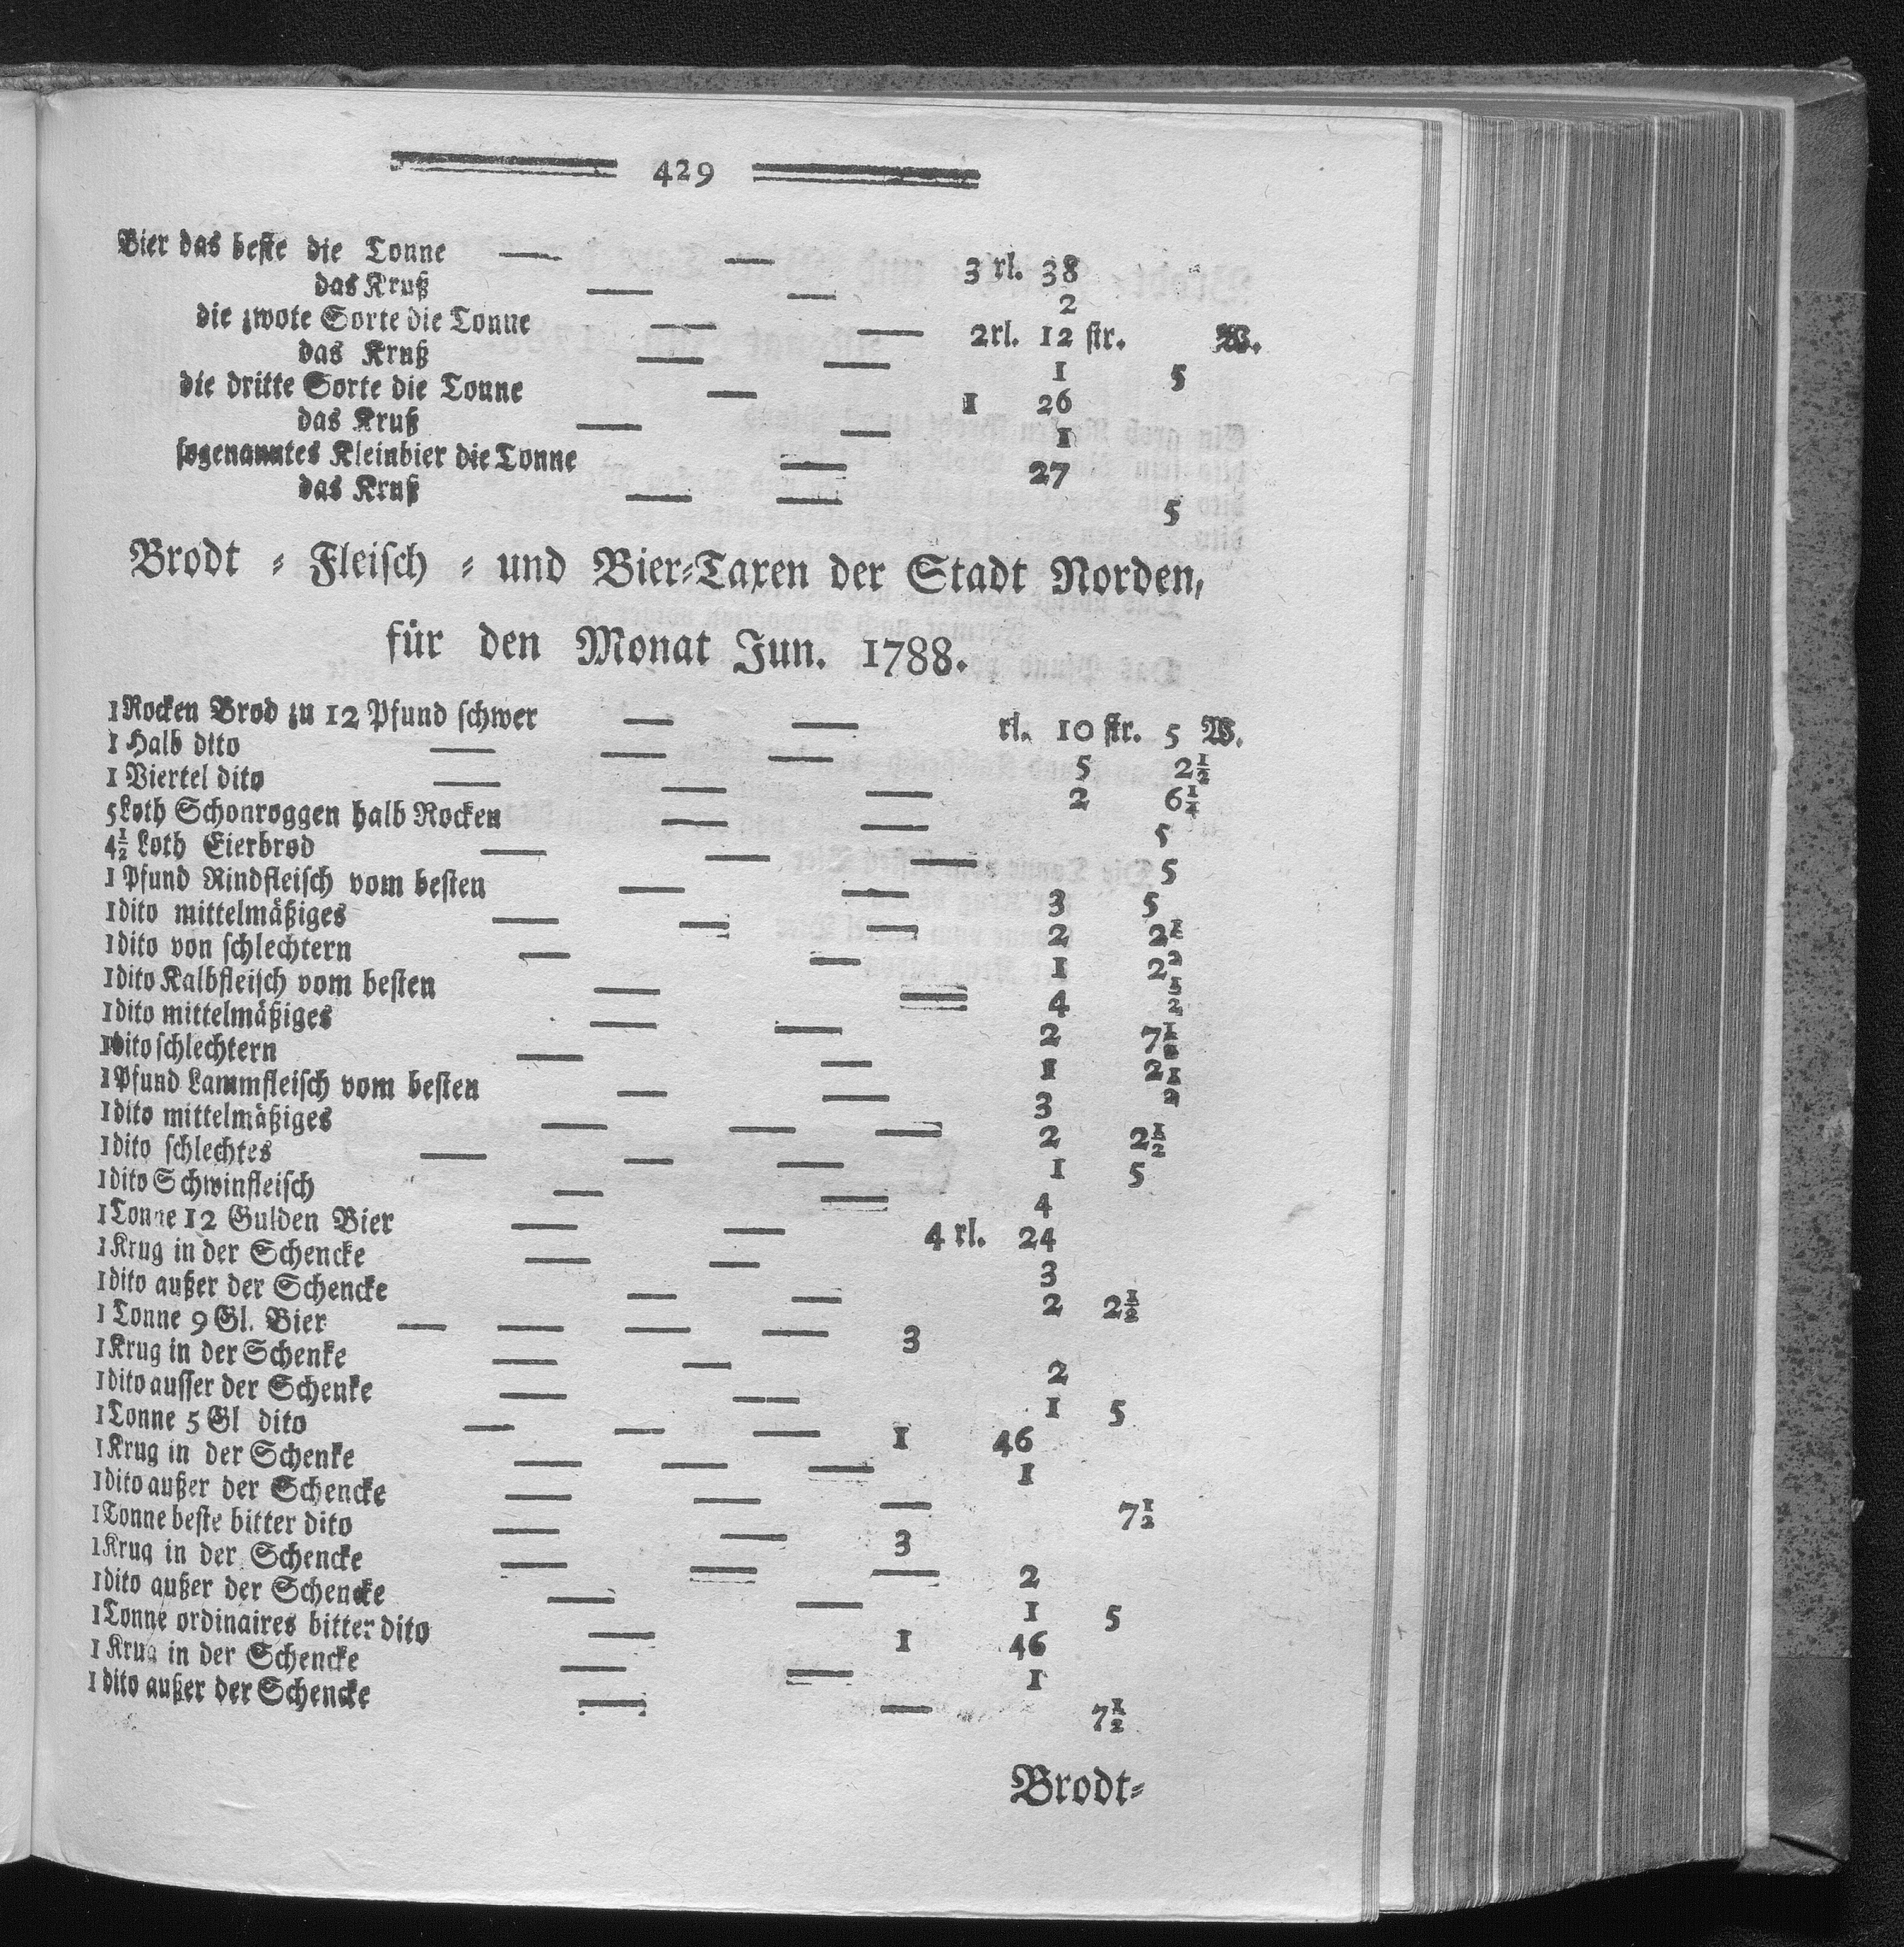 429
Bier das beste die Tonne — — 3 rl. 38
das Kruß — — 2
die zwote Sorte die Tonne — — 2rl. 12 str. W.
das Kruß — — 1 5
die dritte Sorte die Tonne — 1 26
das Kruß — — 1
sogenanntes Kleinbier die Tonne — 27
das Kruß — — 5
Brodt - Fleisch - und Bier-Taxen der Stadt Norden,
für den Monat Jun. 1788.
1 Rocken Brod zu 12 Pfund schwer — — rl. 10 str. 5 W.
1 Halb dito — — — 5 2½
1 Viertel dito — — — 2 6¼
5 Loth Schonroggen halb Rocken — — 5
4½ Loth Eierbrod — — — 5
1 Pfund Rindfleisch vom besten — — 3 5
1 dito mittelmäßiges — — — 2 2½
1 dito von schlechtern — — 1 2½
1 dito Kalbfleisch vom besten — — 4
1 dito mittelmäßiges — — 2 7½
1 dito schlechtern — — 1 2½
1 Pfund Lammfleisch vom besten — — 3
1 dito mittelmäßiges — — — 2 2½
1 dito schlechtes — — — 1 5
1 dito Schwinfleisch — — 4
1 Tonne 12 Gulden Bier — — 4 rl. 24
1 Krug in der Schencke — — 3
1 dito außer der Schencke — — 2 2½
1 Tonne 9 Gl. Bier — — — — 3
1 Krug in der Schenke — — 2
1 dito ausser der Schenke — — 1 5
1 Tonne 5 Gl dito — — — 1 46
1 Krug in der Schenke — — — 1
1 dito außer der Schencke — — — 7½
1 Tonne beste bitter dito — — 3
1 Krug in der Schencke — — — 2
1 dito außer der Schencke — — 1 5
1 Tonne ordinaires bitter dito — 1 46
1 Krug in der Schencke — — 1
1 dito außer der Schencke — — 7½
Brodt-